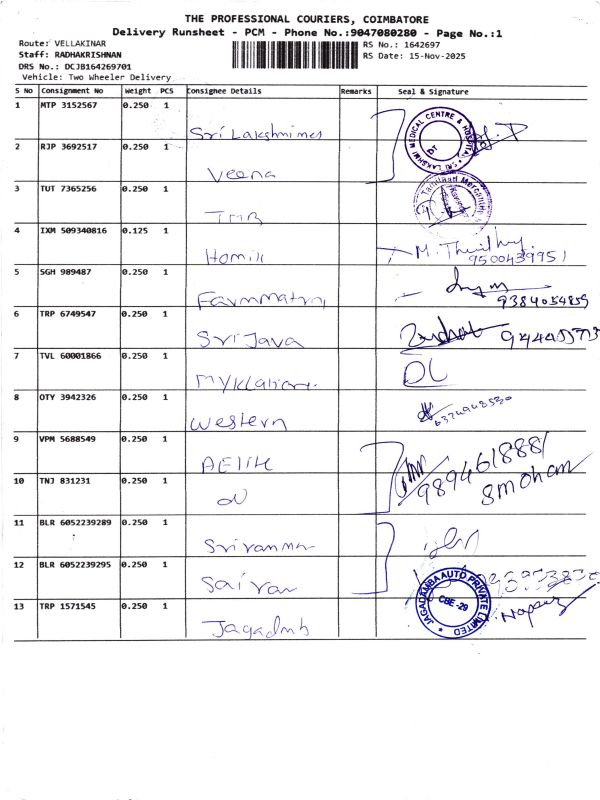 THE PROFESSIONAL COURIERS, COIMBATORE
Delivery Runsheet - PCM - Phone No.:9047080280 - Page No.:1
Route: VELLAKINAR
RS No.: 1642697
Staff: RADHAKRISHNAN
RS Date: 15-Nov-2025
DRS No.: DCJB164269701
Vehicle: Two Wheeler Delivery
S No Consignment No Weight PCS Consignee Details Remarks Seal & Signature
1 MTP 3152567 0.250 1 Sri Lakshmi SRI LAKSHMI MEDICAL CENTRE & HOSPITAL
2 RJP 3692517 0.250 1 Veena
3 TUT 7365256 0.250 1 TMB Tamilnad Mercantile
4 IXM 509340816 0.125 1 M. 9500439951
5 SGH 989487 0.250 1 9384054859
6 TRP 6749547 0.250 1 Sri Jaya
7 TVL 60001866 0.250 1 DL
8 OTY 3942326 0.250 1 Western
9 VPM 5688549 0.250 1 989461888
10 TNJ 831231 0.250 1 Mohan
11 BLR 6052239289 0.250 1
12 BLR 6052239295 0.250 1 Sai
13 TRP 1571545 0.250 1 Jagadmb JAGADAMBA AUTO PRIVATE LIMITED CBE -29